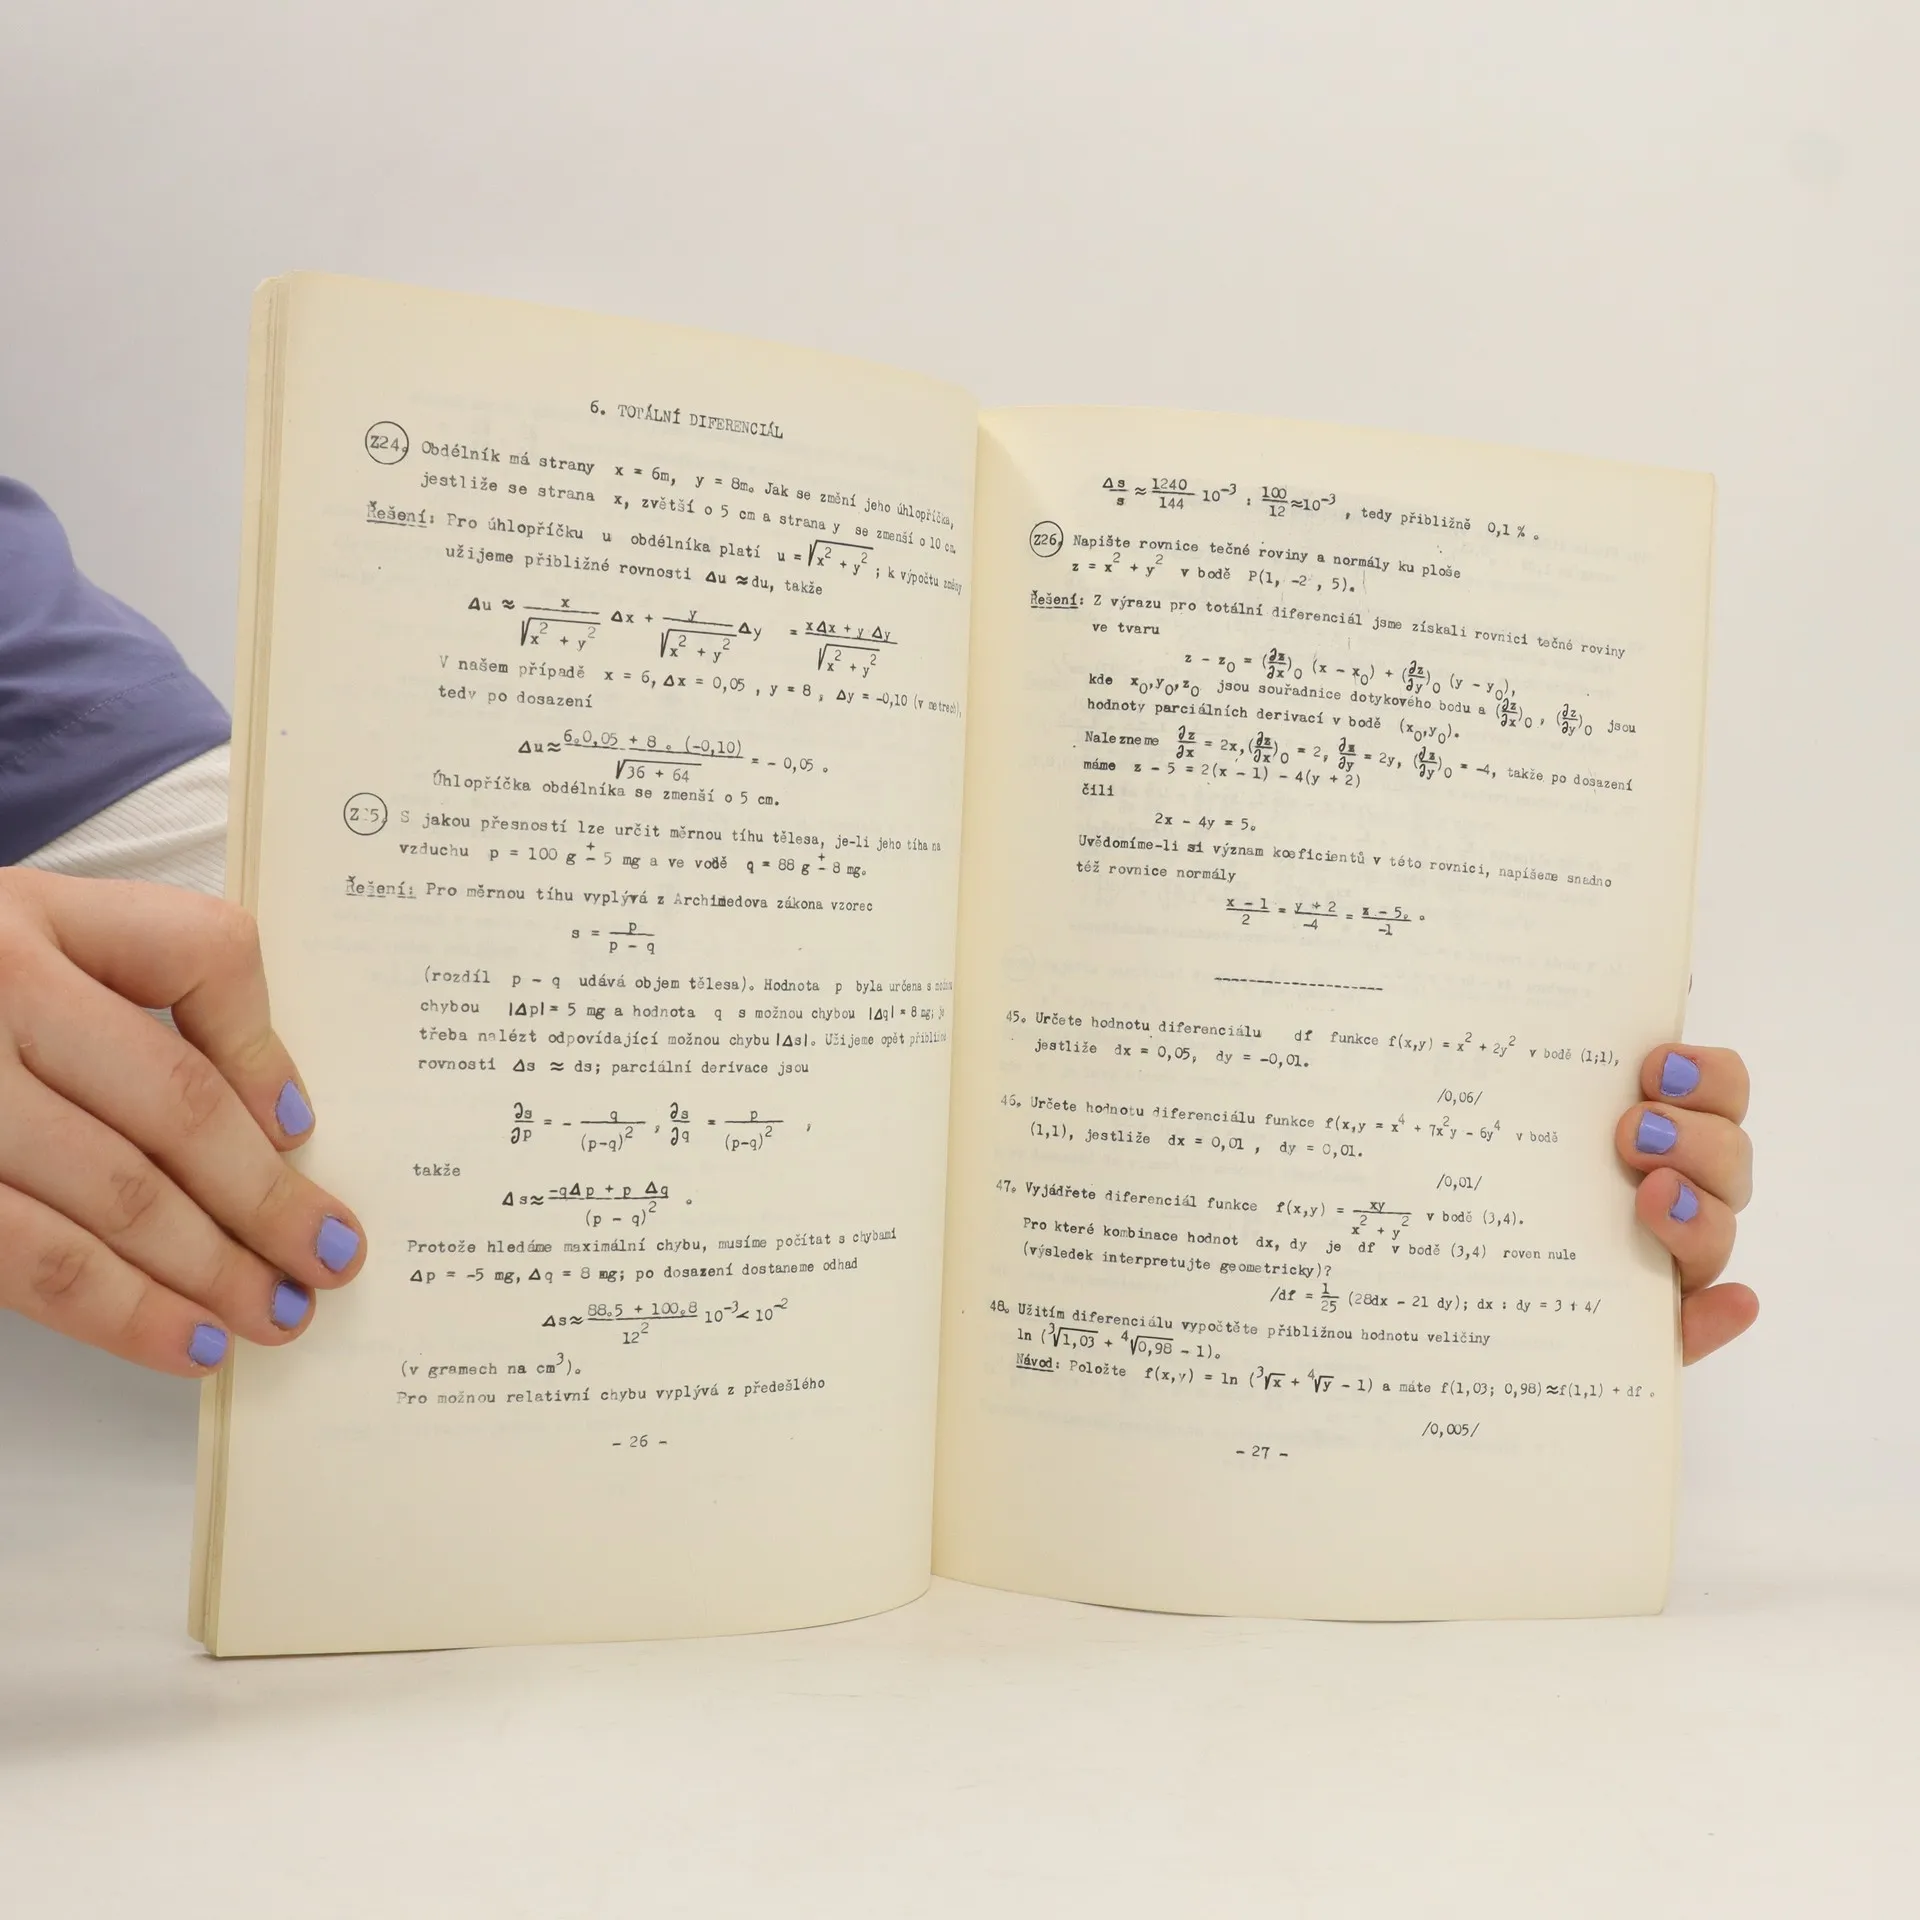 6. TOTÁLNÍ DIFERENCIÁL
Z24. Obdélník má strany x = 6m, y = 8m. Jak se změní jeho úhlopříčka,
jestliže se strana x, zvětší o 5 cm a strana y se zmenší o 10 cm.
Řešení: Pro úhlopříčku u obdélníka platí u = √x² + y² ; k výpočtu změny
užijeme přibližné rovnosti Δu ≈ du, takže
Δu ≈ x/√x² + y² Δx + y/√x² + y² Δy = xΔx + y Δy/√x² + y²
V našem případě x = 6, Δx = 0,05 , y = 8 , Δy = -0,10 (v metrech),
tedy po dosazení
Δu ≈ 6.0,05 + 8 . (-0,10)/√36 + 64 = - 0,05 .
Úhlopříčka obdélníka se zmenší o 5 cm.
Z25. S jakou přesností lze určit měrnou tíhu tělesa, je-li jeho tíha na
vzduchu p = 100 g ± 5 mg a ve vodě q = 88 g ± 8 mg.
Řešení: Pro měrnou tíhu vyplývá z Archimedova zákona vzorec
s = p/p - q
(rozdíl p - q udává objem tělesa). Hodnota p byla určena s možnou
chybou |Δp| = 5 mg a hodnota q s možnou chybou |Δq| = 8 mg; je
třeba nalézt odpovídající možnou chybu |Δs|. Užijeme opět přibližné
rovnosti Δs ≈ ds; parciální derivace jsou
∂s/∂p = - q/(p-q)² , ∂s/∂q = p/(p-q)² ,
takže
Δs≈ -qΔp + p Δq/(p - q)² .
Protože hledáme maximální chybu, musíme počítat s chybami
Δp = -5 mg, Δq = 8 mg; po dosazení dostaneme odhad
Δs≈ 88.5 + 100.8/12² 10⁻³ < 10⁻²
(v gramech na cm³).
Pro možnou relativní chybu vyplývá z předešlého
- 26 -
Δs/s ≈ 1240/144 10⁻³ : 100/12 ≈10⁻³ , tedy přibližně 0,1 % .
Z26. Napište rovnice tečné roviny a normály ku ploše
z = x² + y² v bodě P(1, -2 , 5).
Řešení: Z výrazu pro totální diferenciál jsme získali rovnici tečné roviny
ve tvaru
z - z₀ = (∂z/∂x)₀ (x - x₀) + (∂z/∂y)₀ (y - y₀),
kde x₀,y₀,z₀ jsou souřadnice dotykového bodu a (∂z/∂x)₀ , (∂z/∂y)₀ jsou
hodnoty parciálních derivací v bodě (x₀,y₀).
Nalezneme ∂z/∂x = 2x, (∂z/∂x)₀ = 2, ∂z/∂y = 2y, (∂z/∂y)₀ = -4, takže po dosazení
máme z - 5 = 2(x - 1) - 4(y + 2)
čili
2x - 4y = 5.
Uvědomíme-li si význam koeficientů v této rovnici, napíšeme snadno
též rovnice normály
x - 1/2 = y + 2/-4 = z - 5./-1 .
--------------------
45. Určete hodnotu diferenciálu df funkce f(x,y) = x² + 2y² v bodě (1;1),
jestliže dx = 0,05, dy = -0,01.
/0,06/
46. Určete hodnotu diferenciálu funkce f(x,y = x⁴ + 7x²y - 6y⁴ v bodě
(1,1), jestliže dx = 0,01 , dy = 0,01.
/0,01/
47. Vyjádřete diferenciál funkce f(x,y) = xy/x² + y² v bodě (3,4).
Pro které kombinace hodnot dx, dy je df v bodě (3,4) roven nule
(výsledek interpretujte geometricky)?
/df = 1/25 (28dx - 21 dy); dx : dy = 3 : 4/
48. Užitím diferenciálu vypočtěte přibližnou hodnotu veličiny
ln (³√1,03 + ⁴√0,98 - 1).
Návod: Položte f(x,y) = ln (³√x + ⁴√y - 1) a máte f(1,03; 0,98)≈f(1,1) + df .
/0,005/
- 27 -